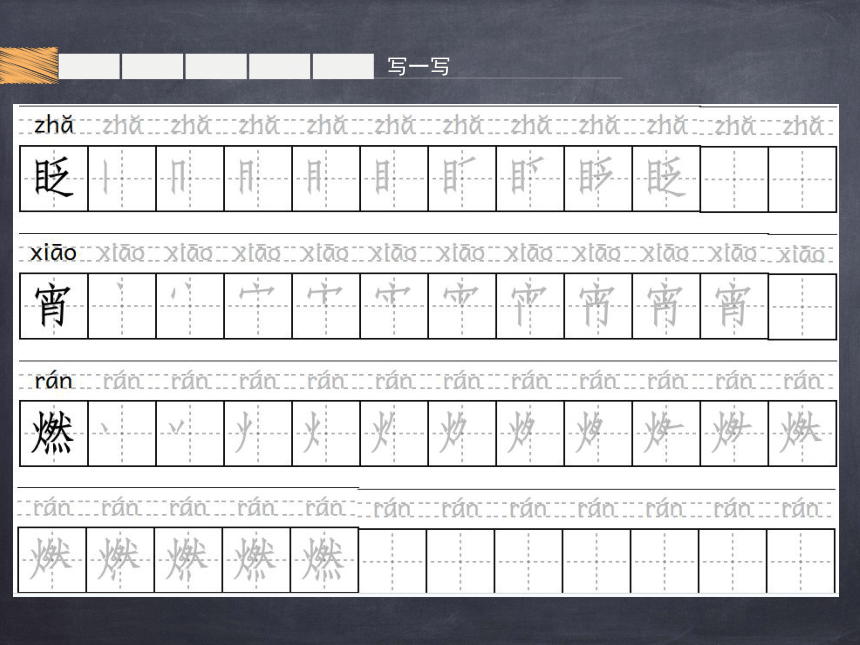 写一写
zhǎ zhǎ zhǎ zhǎ zhǎ zhǎ zhǎ zhǎ zhǎ zhǎ zhǎ zhǎ
眨 眨
xiāo xiāo xiāo xiāo xiāo xiāo xiāo xiāo xiāo xiāo xiāo xiāo
宵 宵
rán rán rán rán rán rán rán rán rán rán rán rán
燃
rán rán rán rán rán rán rán rán rán rán rán rán
燃